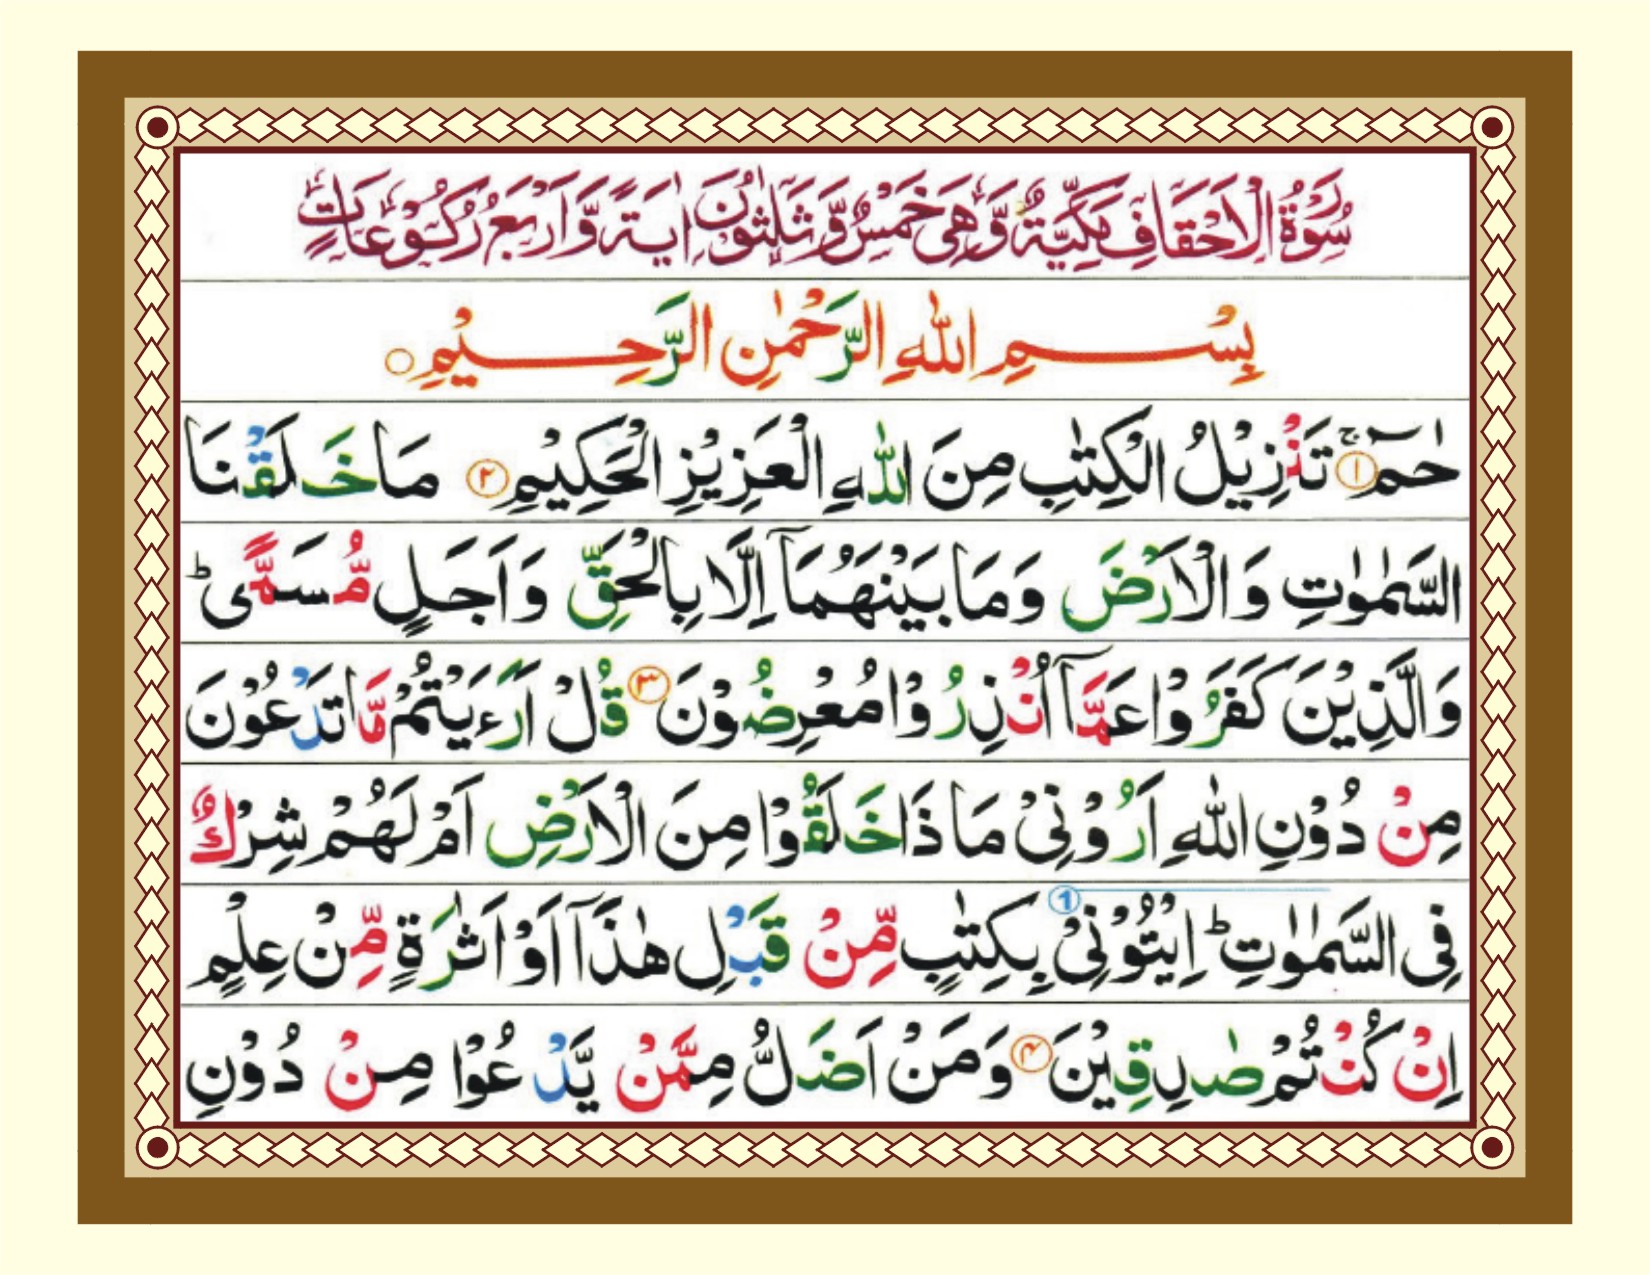 سُوْرَةُ الْاَحْقَافِ مَكِّيَّةٌ وَّهِىَ خَمْسٌ وَّثَلٰثُوْنَ اٰيَةً وَّاَرْبَعُ رُكُوْعَاتٍ
بِسْمِ اللّٰهِ الرَّحْمٰنِ الرَّحِيْمِ ○
حٰمٓ ۚ ﴿۱﴾ تَنْزِيْلُ الْكِتٰبِ مِنَ اللّٰهِ الْعَزِيْزِ الْحَكِيْمِ ﴿۲﴾ مَا خَلَقْنَا
السَّمٰوٰتِ وَالْاَرْضَ وَمَا بَيْنَهُمَاۤ اِلَّا بِالْحَقِّ وَاَجَلٍ مُّسَمًّى ؕ
وَالَّذِيْنَ كَفَرُوْا عَمَّاۤ اُنْذِرُوْا مُعْرِضُوْنَ ﴿۳﴾ قُلْ اَرَءَيْتُمْ مَّا تَدْعُوْنَ
مِنْ دُوْنِ اللّٰهِ اَرُوْنِىْ مَا ذَا خَلَقُوْا مِنَ الْاَرْضِ اَمْ لَهُمْ شِرْكٌ
فِى السَّمٰوٰتِ ؕ اِيْتُوْنِىْ ① بِكِتٰبٍ مِّنْ قَبْلِ هٰذَاۤ اَوْ اَثٰرَةٍ مِّنْ عِلْمٍ
اِنْ كُنْتُمْ صٰدِقِيْنَ ﴿۴﴾ وَمَنْ اَضَلُّ مِمَّنْ يَّدْعُوْا مِنْ دُوْنِ